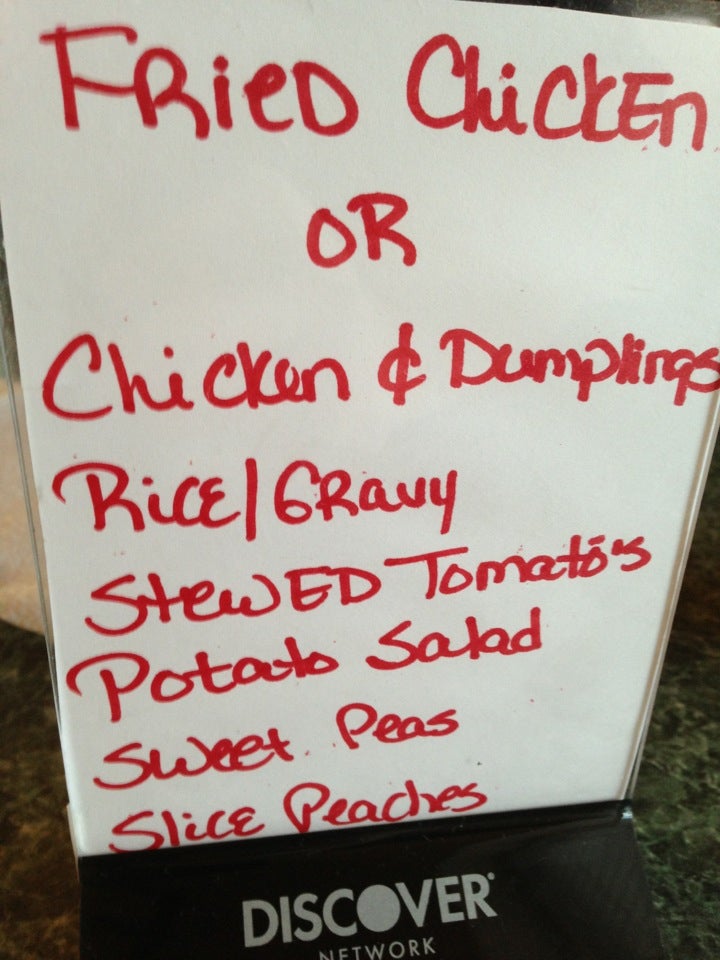 FRieD ChiCkEn
OR
Chicken & Dumplings
RicE/GRavy
StewED Tomato's
Potato Salad
Sweet Peas
SlicE Peaches
DISCOVER
NETWORK